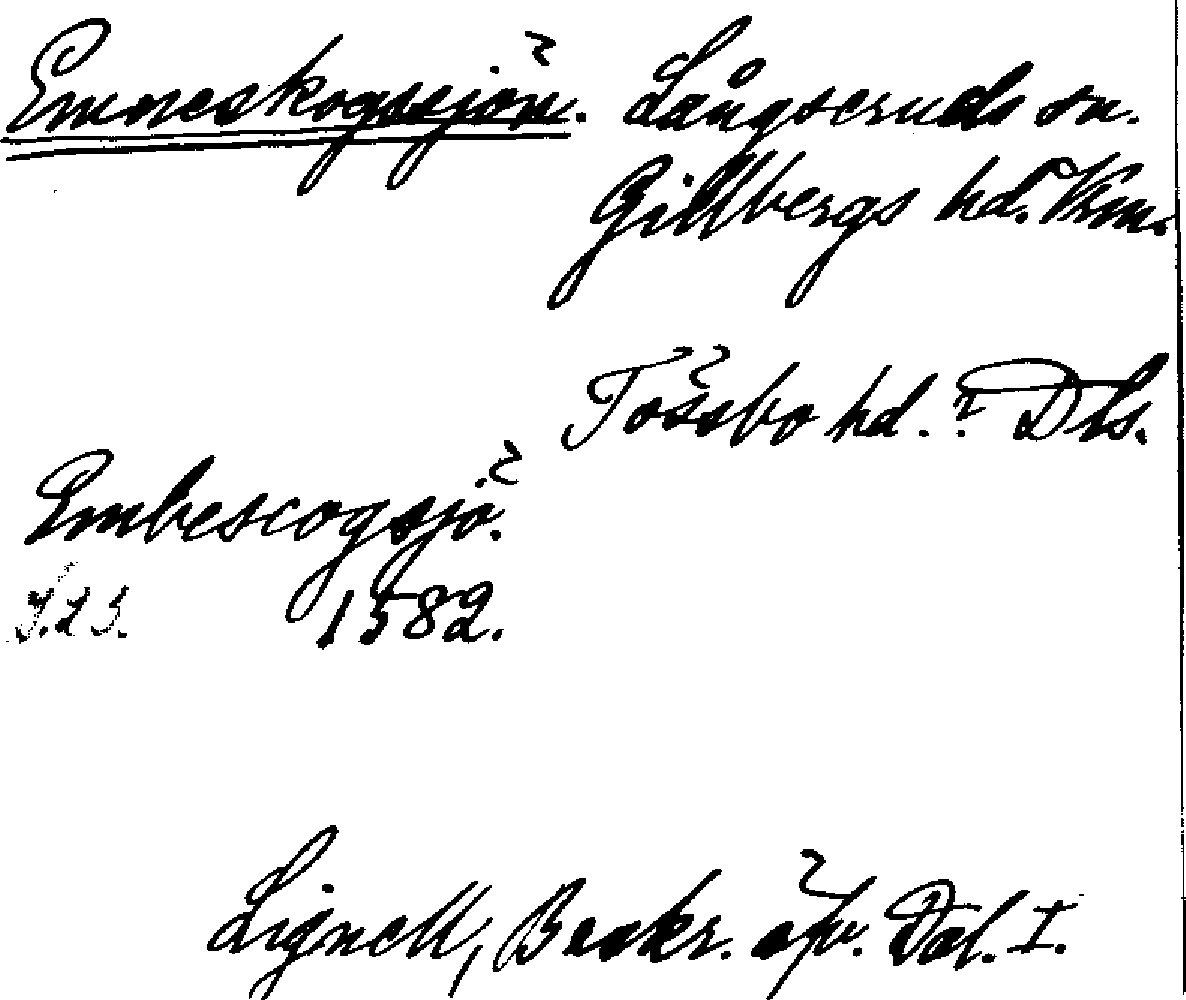 Emneskogssjön. Långseruds sn.
Gillbergs hd. Vrm.
Tössbo hd. i Dls.
Embescogsjö.
S. 23. 1582.
Lignell, Beskr. öfv. Dal. I.